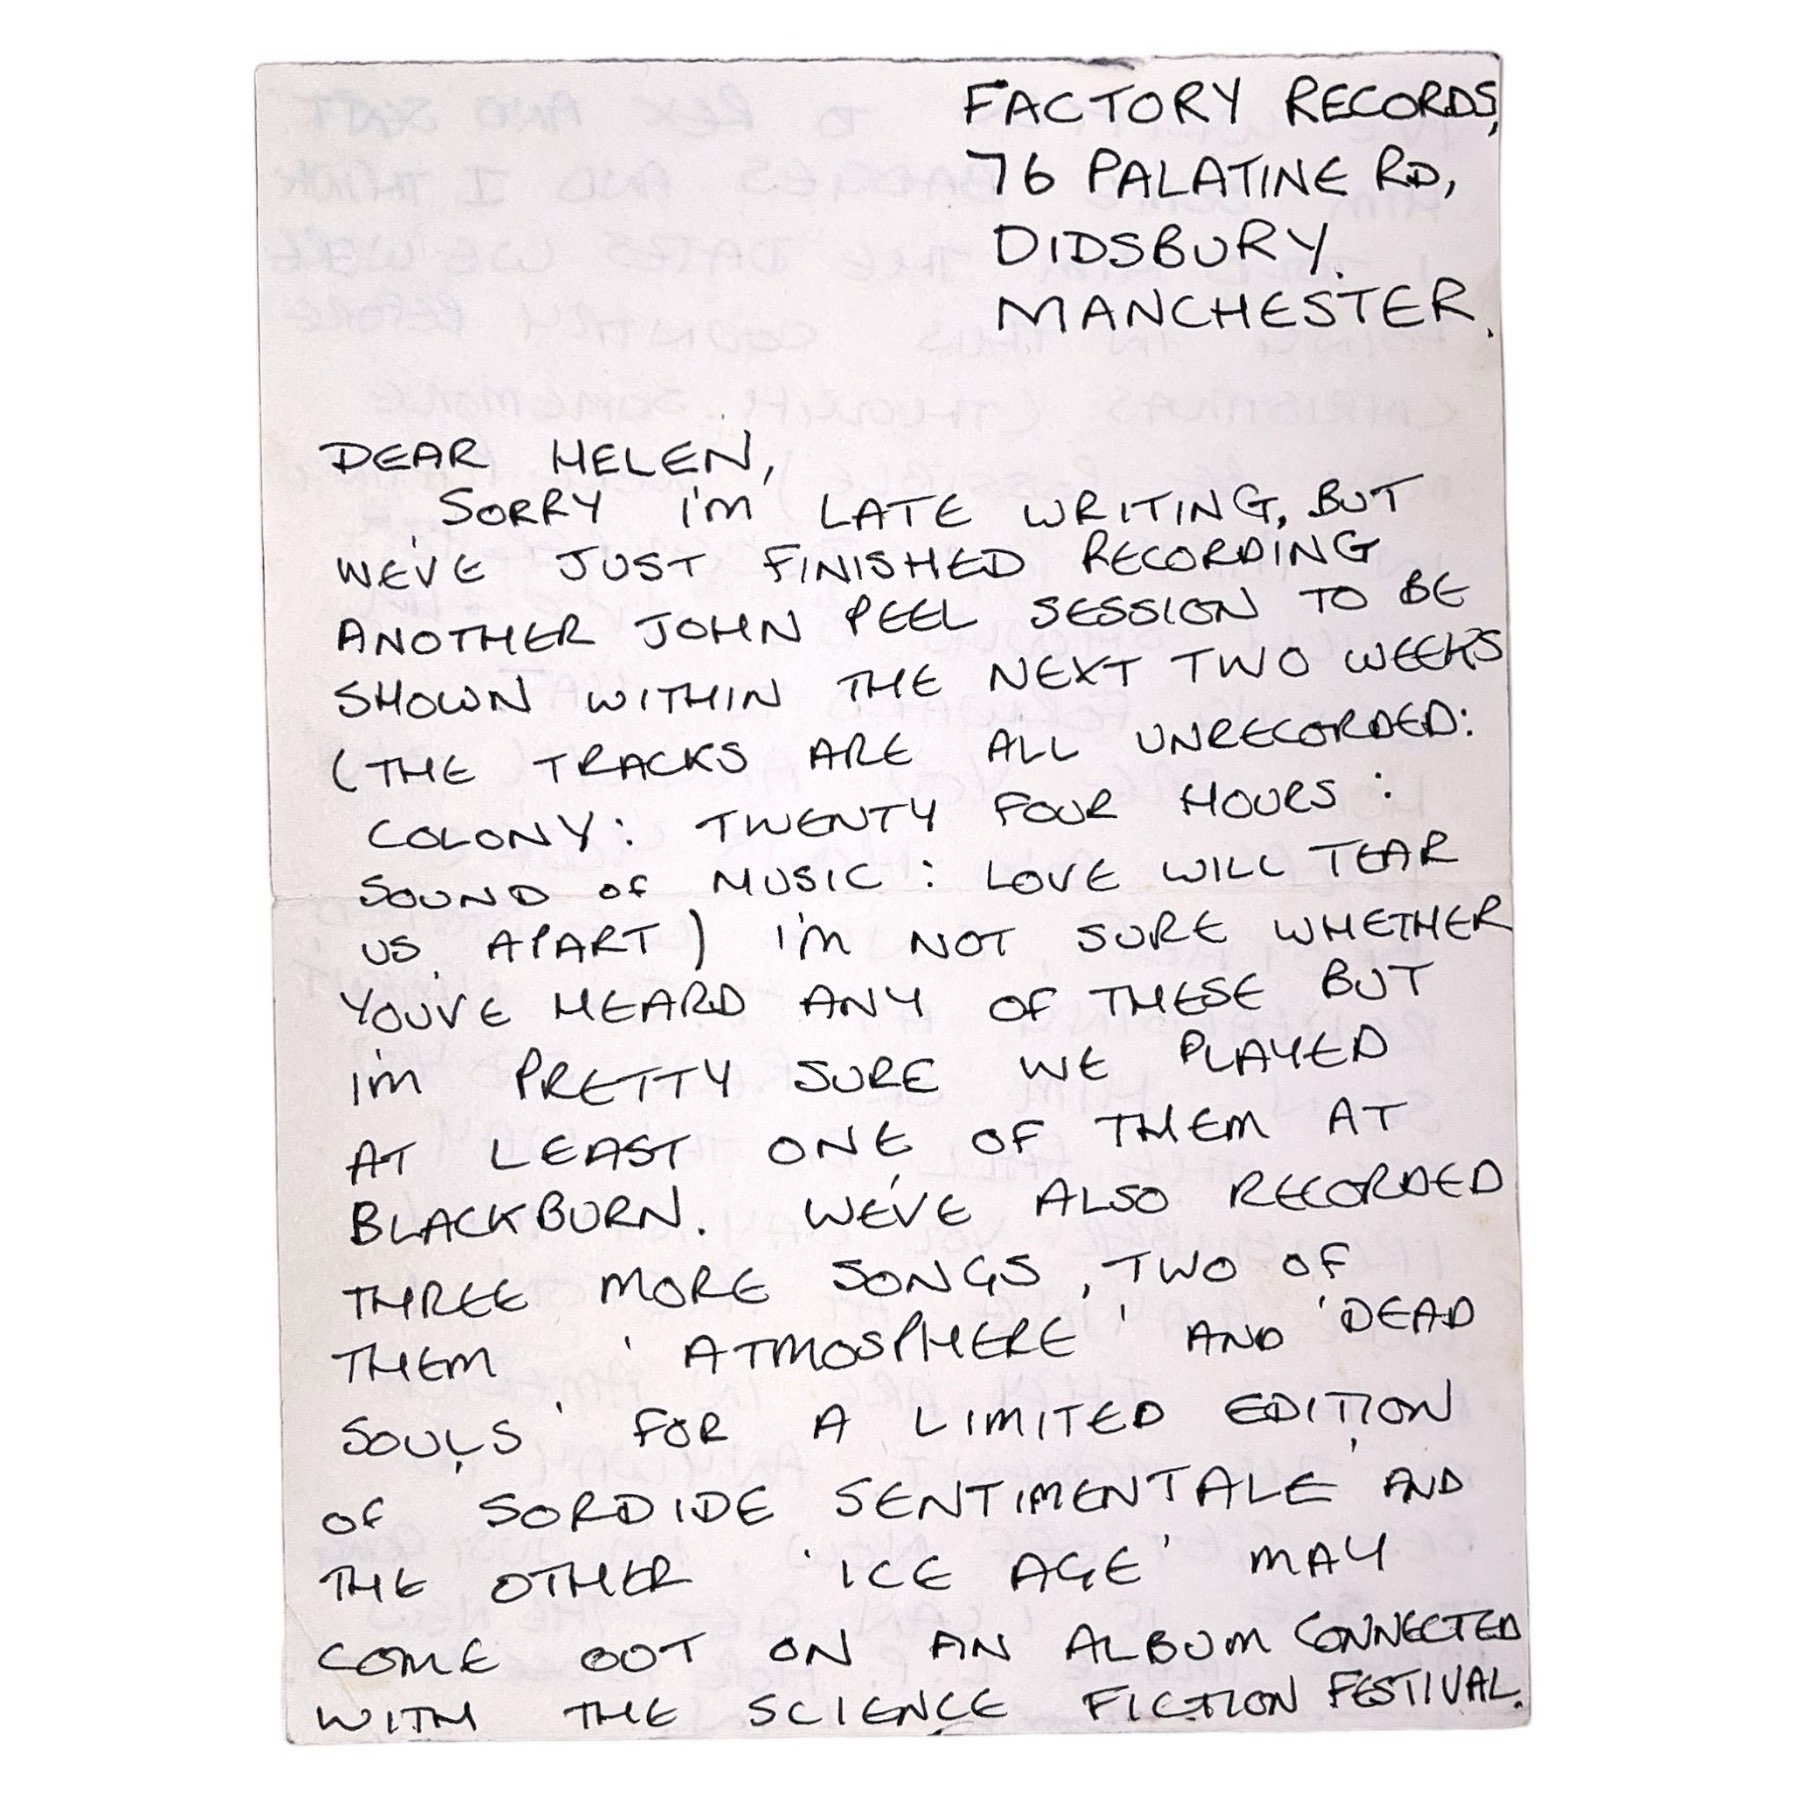 FACTORY RECORDS,
76 PALATINE RD,
DIDSBURY.
MANCHESTER.
DEAR HELEN,
SORRY I'M LATE WRITING, BUT
WE'VE JUST FINISHED RECORDING
ANOTHER JOHN PEEL SESSION TO BE
SHOWN WITHIN THE NEXT TWO WEEKS
(THE TRACKS ARE ALL UNRECORDED:
COLONY: TWENTY FOUR HOURS:
SOUND OF MUSIC: LOVE WILL TEAR
US APART) I'M NOT SURE WHETHER
YOU'VE HEARD ANY OF THESE BUT
I'M PRETTY SURE WE PLAYED
AT LEAST ONE OF THEM AT
BLACKBURN. WE'VE ALSO RECORDED
THREE MORE SONGS, TWO OF
THEM 'ATMOSPHERE' AND 'DEAD
SOULS' FOR A LIMITED EDITION
OF 'SORDIDE SENTIMENTALE' AND
THE OTHER 'ICE AGE' MAY
COME OUT ON AN ALBUM CONNECTED
WITH THE SCIENCE FICTION FESTIVAL.